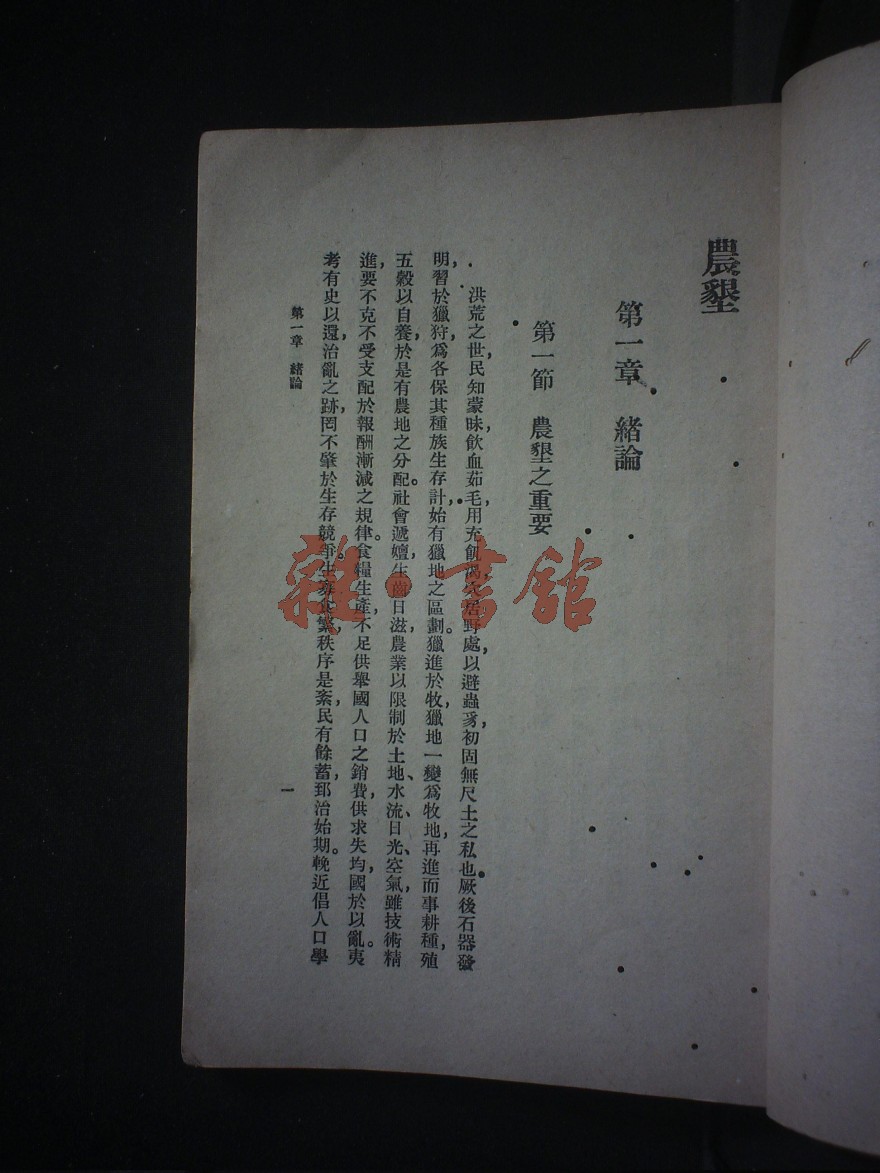 農墾
第一章 緒論
第一節 農墾之重要
洪荒之世,民知蒙昧,飲血茹毛,用充飢渴,穴居野處,以避蟲豸,初固無尺土之私也。厥後石器發
明,習於獵狩,爲各保其種族生存計,始有獵地之區劃。獵進於牧,獵地一變爲牧地,再進而事耕種,殖
五穀以自養,於是有農地之分配。社會遞嬗,生齒日滋,農業以限制於土地、水流、日光、空氣,雖技術精
進,要不克不受支配於報酬漸減之規律。食糧生產,不足供舉國人口之銷費,供求失均,國於以亂。夷
考有史以還,治亂之跡,罔不肇於生存競爭,生食繁,秩序是紊,民有餘蓄,郅治始期。輓近倡人口學
第一章 緒論
一
雜·書館